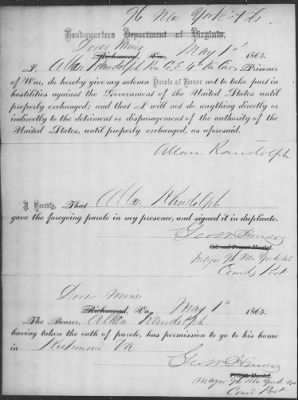 96 New York Vols.
Headquarters Department of Virginia,
Dover Mines May 1st 1865.
I, Allan Randolph 4th Va Cav, Prisoner
of War, do hereby give my solemn Parole of Honor not to take part in
hostilities against the Government of the United States until
properly exchanged; and that I will not do anything directly or
indirectly to the detriment or disparagement of the authority of the
United States, until properly exchanged, as aforesaid.
Allan Randolph
I Certify, That Allan Randolph
gave the foregoing parole in my presence, and signed it in duplicate.
Geo W Hindes
Major 96 New York Vol
Comdg Post
Dover Mines
Richmond, Va. May 1st 1865.
The Bearer, Allan Randolph
having taken the oath of parole, has permission to go to his home
in Richmond Va
Geo W Hindes
Major 96 New York Vol
Comd Post